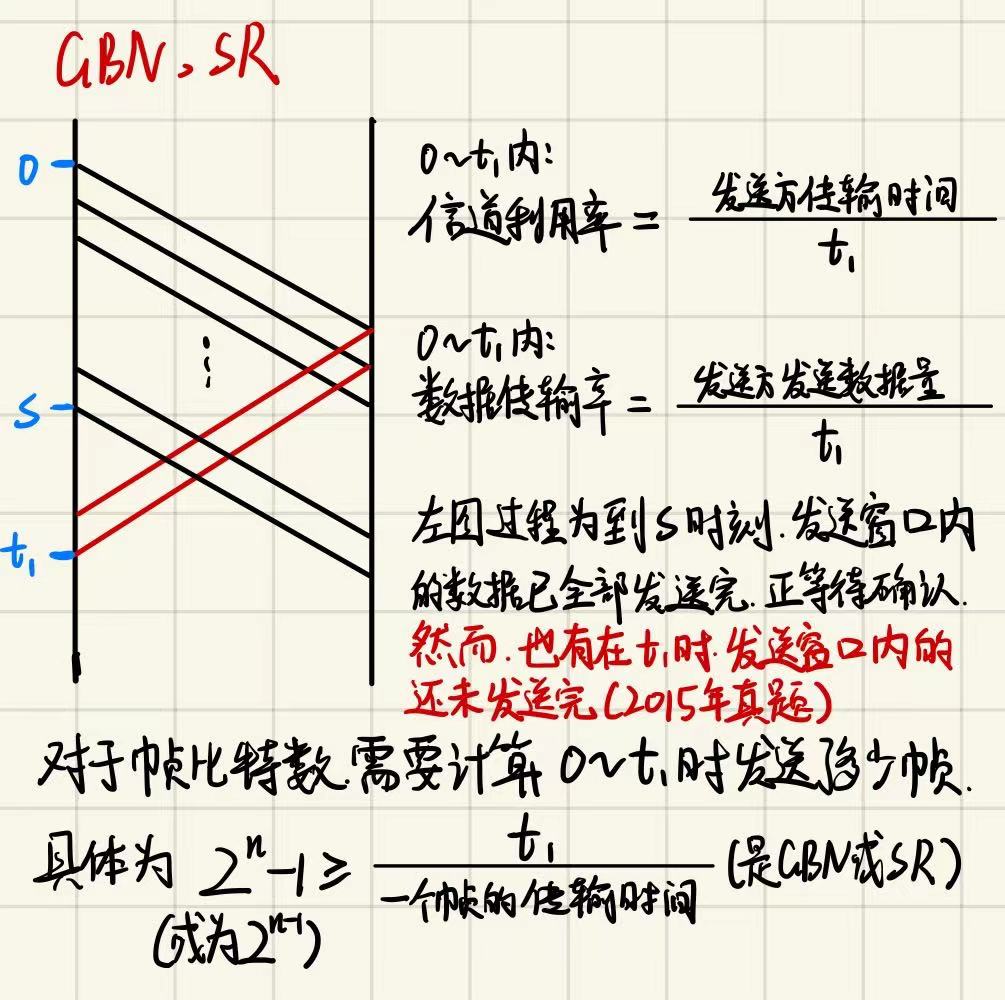 GBN、SR
0
S
t₁
0~t₁内:
信道利用率 = 发送方传输时间 / t₁
0~t₁内:
数据传输率 = 发送方发送数据量 / t₁
左图过程为到S时刻.发送窗口内
的数据已全部发送完.正等待确认.
然而.也有在t₁时.发送窗口内的
还未发送完(2015年真题)
对于帧比特数.需要计算0~t₁时发送多少帧.
具体为 2ⁿ-1 ≥ t₁ / 一个帧的传输时间 (是GBN或SR)
(或为2ⁿ⁻¹)